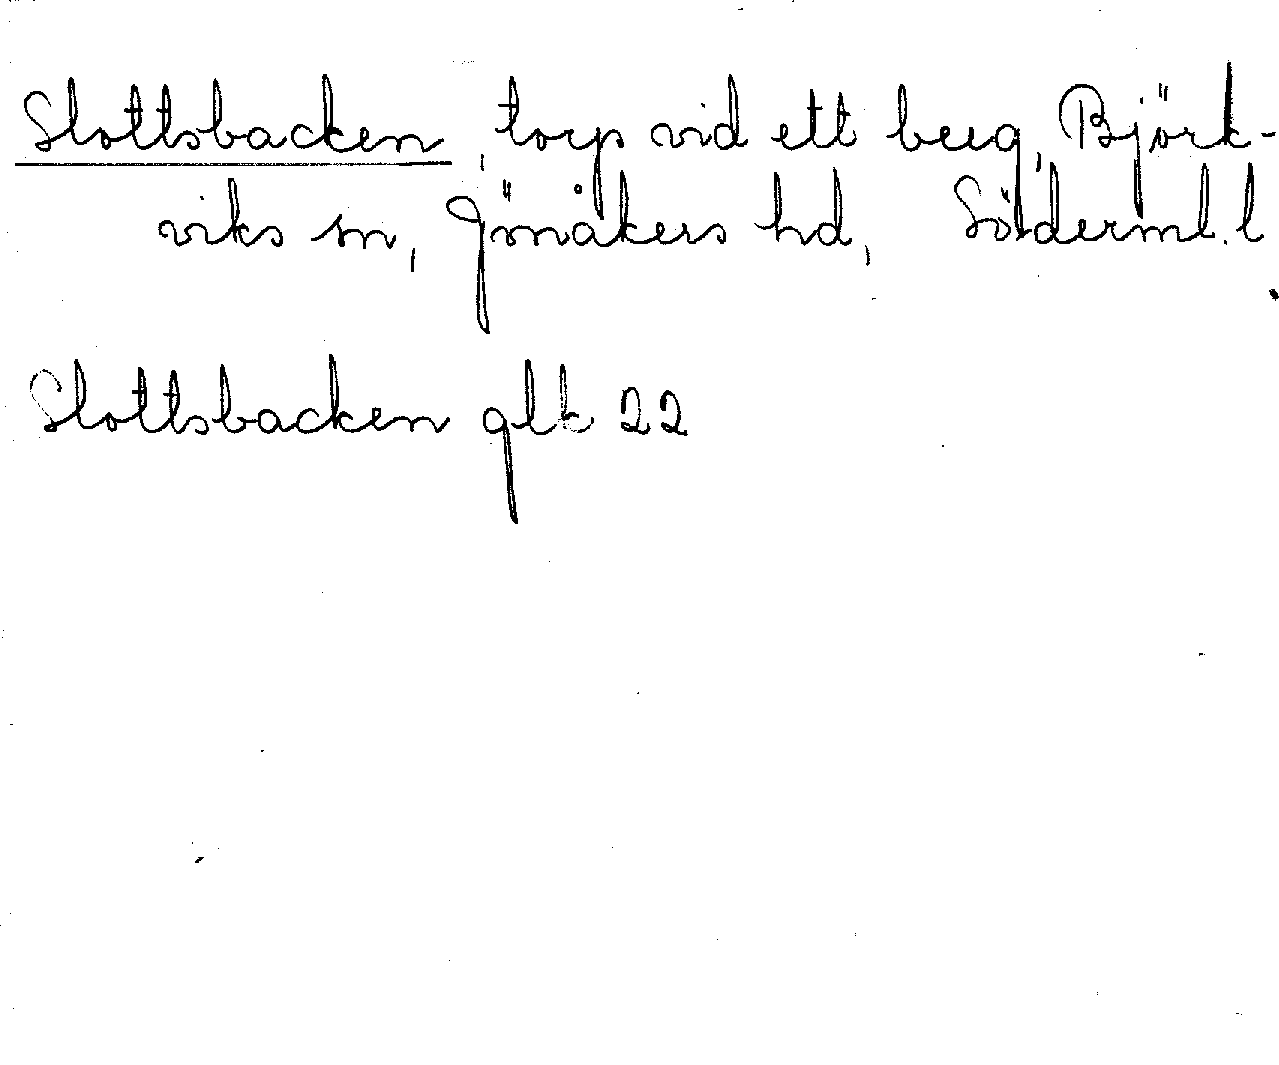 Slottsbacken, torp vid ett berg, Björk-
viks sn, Jönåkers hd, Söderml. l
Slottsbacken glk 22